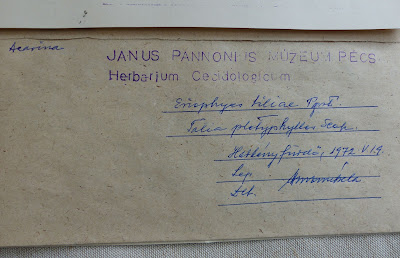 Acarina
JANUS PANNONIUS MÚZEUM PÉCS
Herbarium Cecidologicum
Eriophyes tiliae Pgst.
Tilia platyphyllos Scop.
Harkányfürdő, 1972 VI 9.
Leg.
Det.